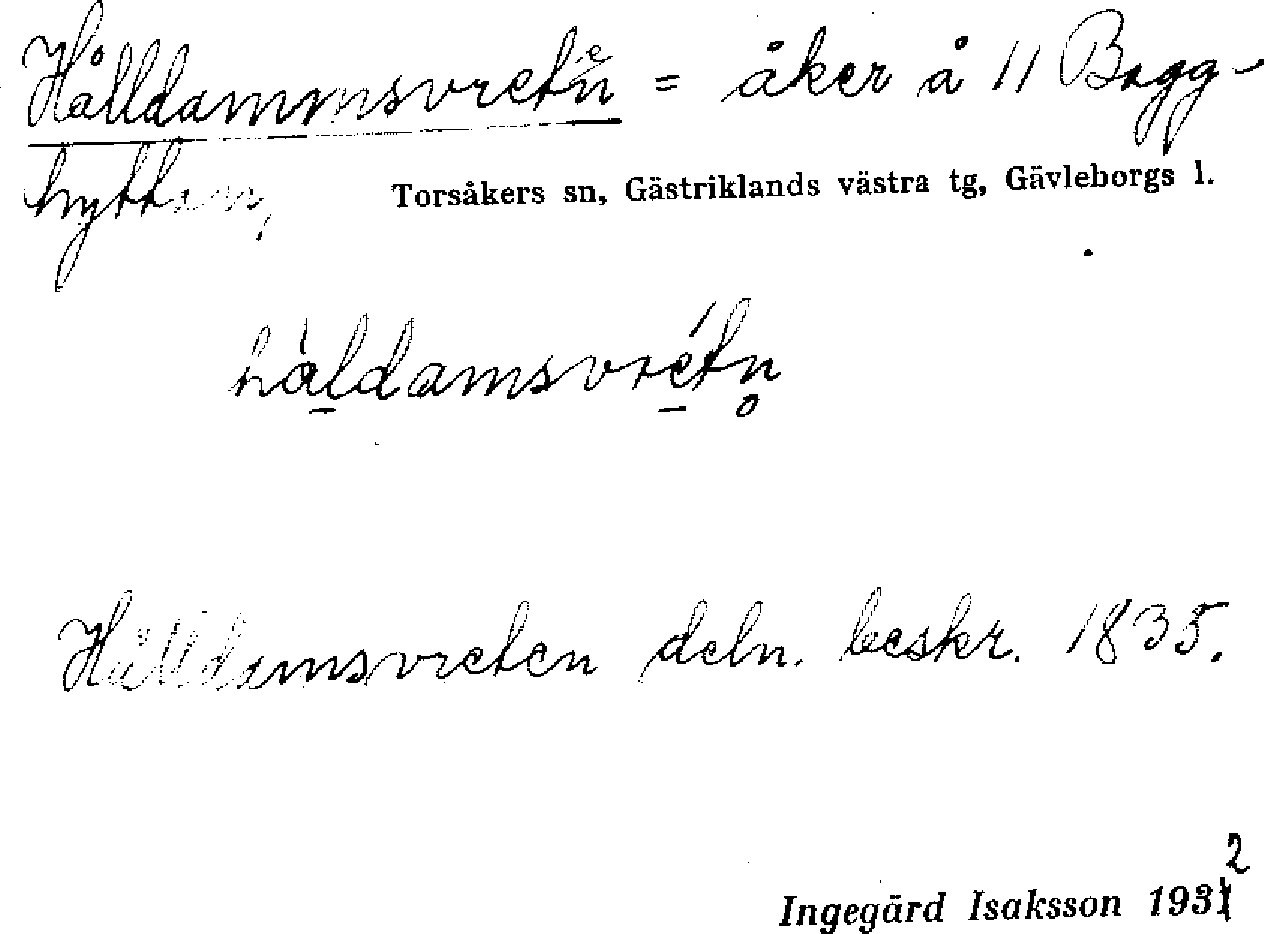 Hålldammsvreten = åker å 11 Bogg-
hyttan,
Torsåkers sn, Gästriklands västra tg, Gävleborgs l.
hàldamsvrétn̥
Hålldamsvreten deln. beskr. 1835.
Ingegärd Isaksson 1932